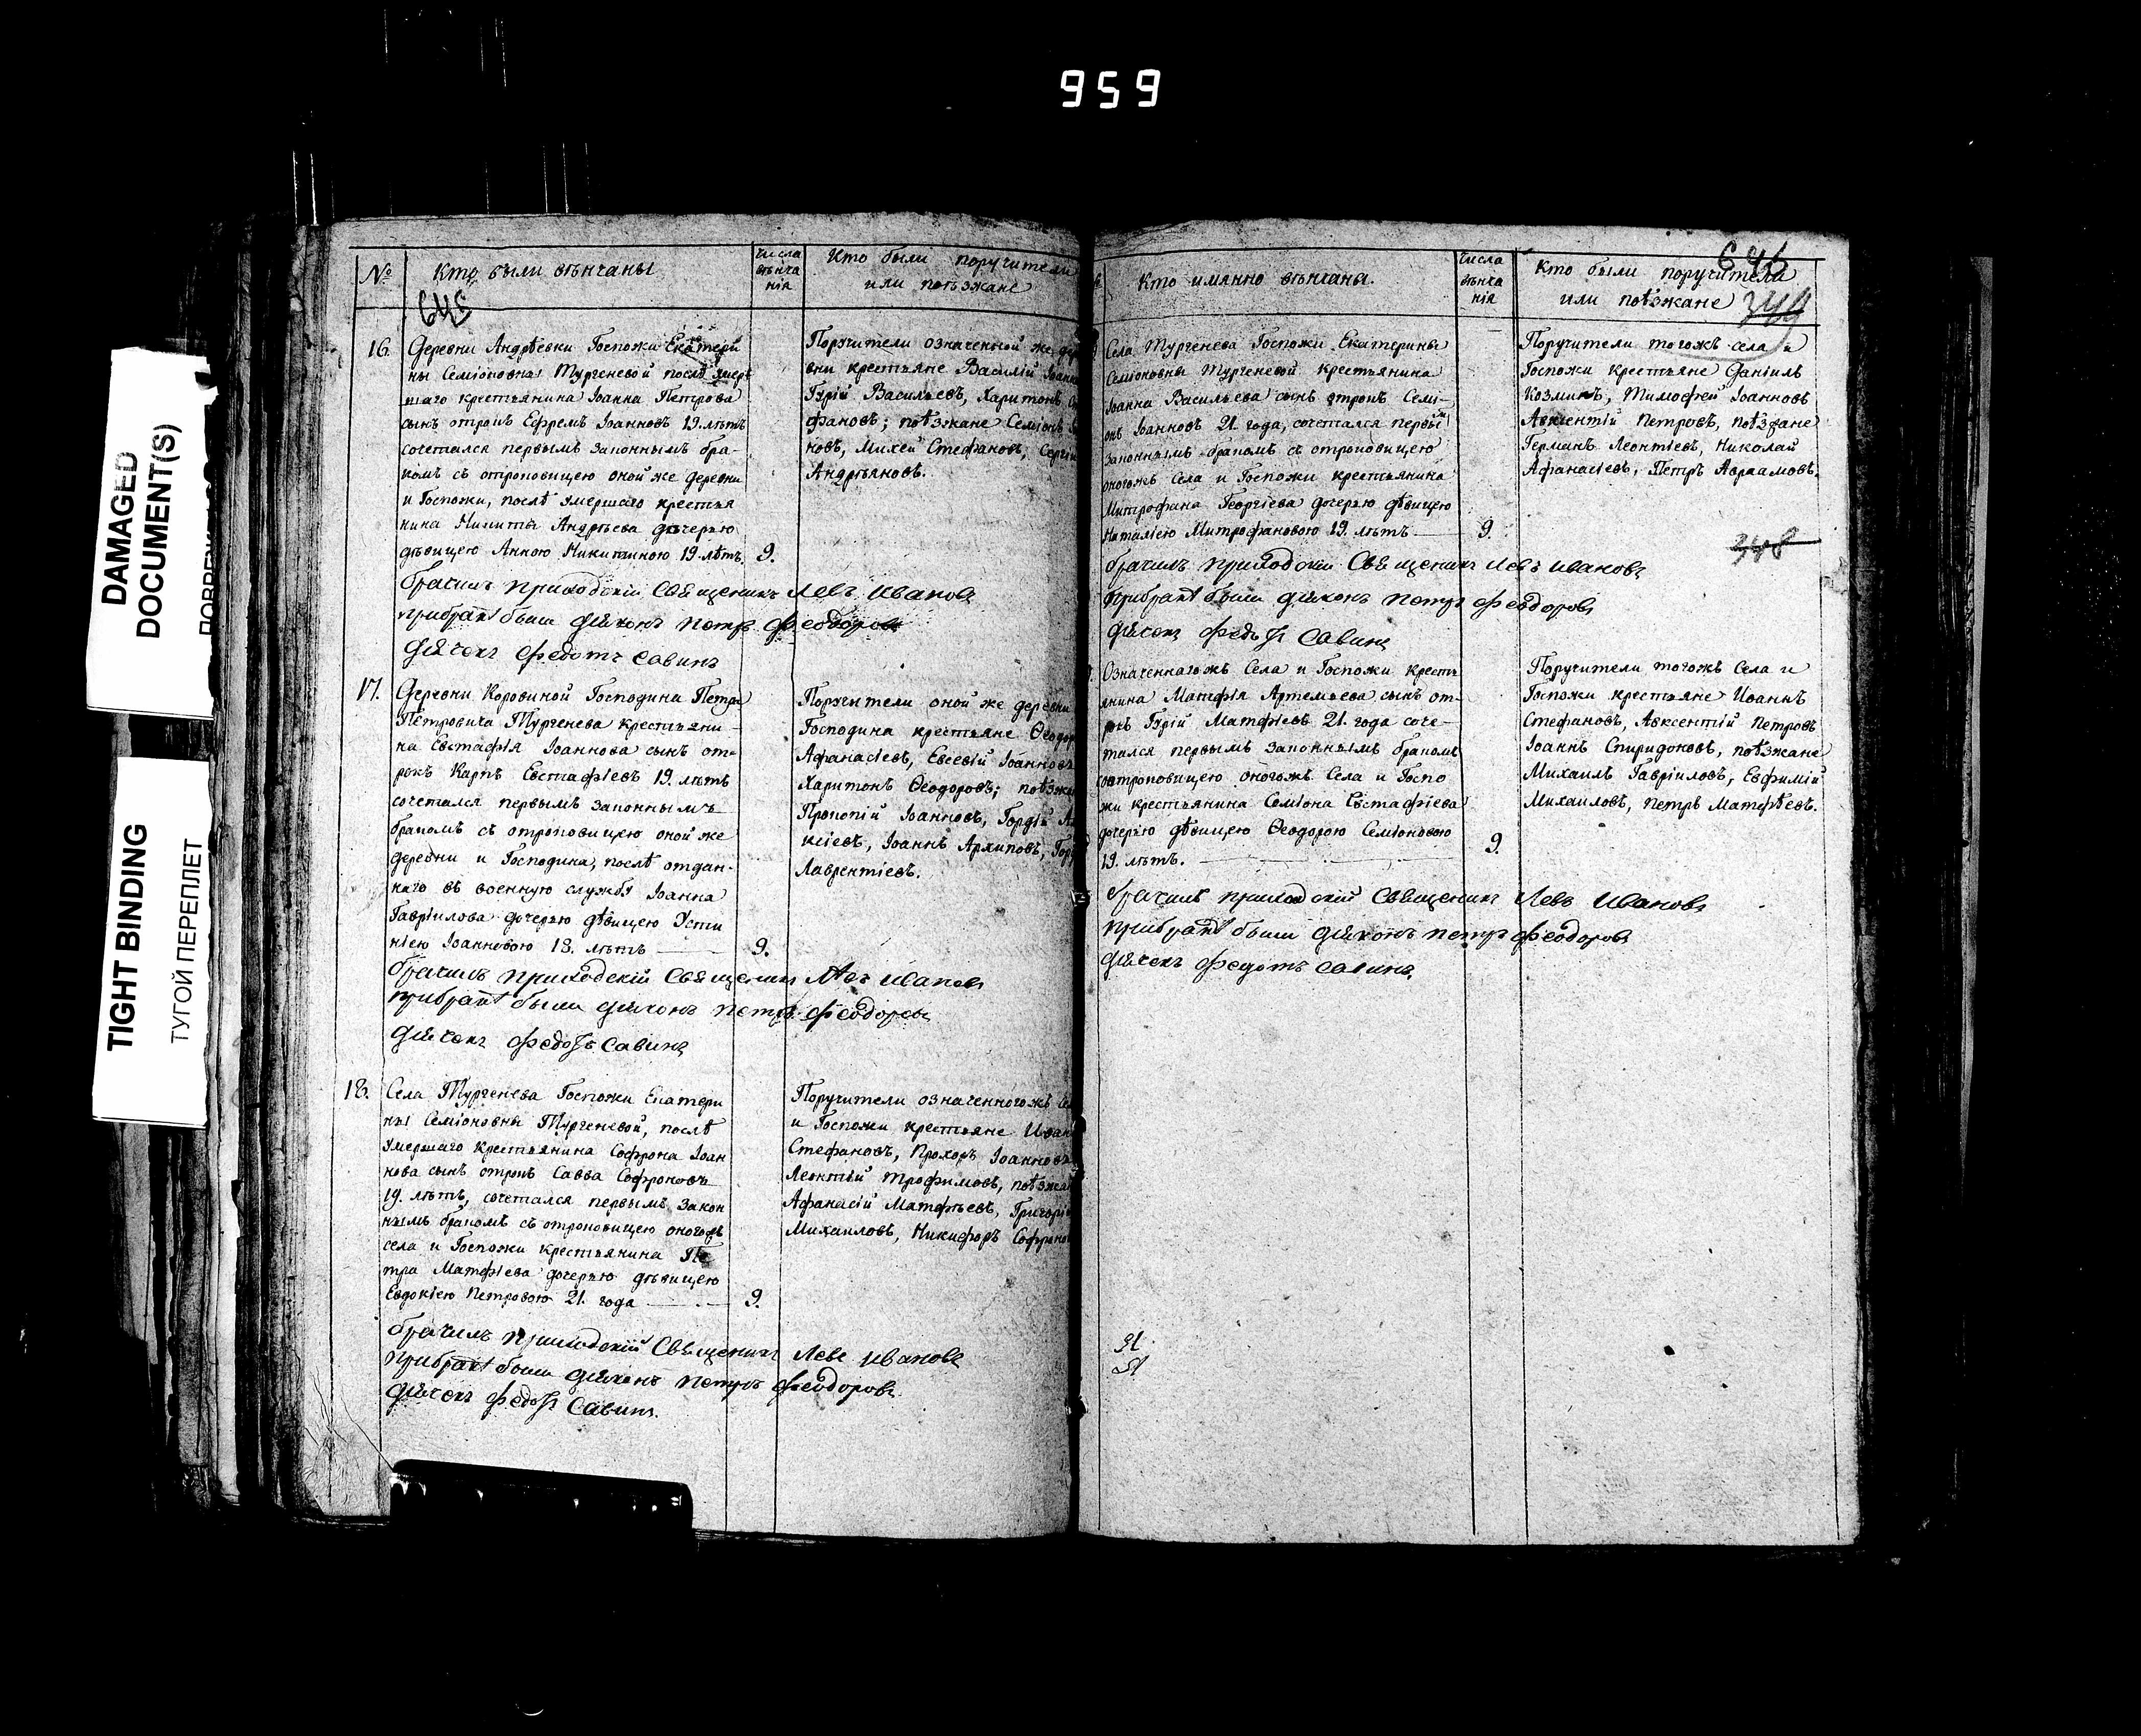 959
DAMAGED
DOCUMENT(S)
TIGHT BINDING
ТУГОЙ ПЕРЕПЛЕТ
№
Кто были вѣнчаны
числа
вѣнча
нія
Кто были поручители
или поѣзжане
645
16.
Деревни Андрѣевки Госпожи Екатери
ны Семіоновны Тургеневой послѣ умер
шаго крестьянина Іоанна Петрова
сынъ отрокъ Ефремъ Іоанновъ 19. лѣтъ
сочетался первымъ законнымъ бра-
комъ съ отроковицею оной же деревни
и Госпожи, послѣ умершаго крестья
нина Никиты Андрѣева дочерью
дѣвицею Анною Никитиною 19. лѣтъ.
9.
Поручители означенной же
вни крестьяне Василій
Гурій Васильевъ, Харитонъ
фановъ; поѣзжане Семіонъ
новъ, Михей Стефановъ,
Андрѣяновъ.
брачилъ приходскій Священикъ Левъ Ивановъ
прибракѣ были діяконъ Петръ Феодоровъ
діячекъ Федотъ Савинъ
17.
Деревни Коровиной Господина Петра
Петровича Тургенева крестьяни-
на Евстафія Іоаннова сынъ от-
рокъ Карпъ Евстафіевъ 19. лѣтъ
сочетался первымъ законнымъ
бракомъ съ отроковицею оной же
деревни и Господина, послѣ отдан-
наго въ военную службу Іоанна
Гавріилова дочерью дѣвицею Усти
ніею Іоанновою 18. лѣтъ
9.
Поручители оной же деревни
Господина крестьяне
Афанасіевъ, Евсевій Іоанновъ
Харитонъ Ѳеодоровъ;
Прокопій Іоанновъ, Гордій
ксіевъ, Іоаннъ Архиповъ,
Лаврентіевъ.
брачилъ приходскій Священикъ Левъ Ивановъ
прибракѣ были діяконъ Петръ Феодоровъ
діячекъ Федотъ Савинъ
18.
Села Тургенева Госпожи Екатери
ны Семіоновны Тургеневой, послѣ
умершаго крестьянина Софрона Іоан
нова сынъ отрокъ Савва Софроновъ
19. лѣтъ, сочетался первымъ закон
нымъ бракомъ съ отроковицею оногожъ
села и Госпожи крестьянина Пе
тра Матфіева дочерью дѣвицею
Евдокіею Петровою 21. года
9.
Поручители означенногожъ
и Госпожи крестьяне
Стефановъ, Прохоръ Іоанновъ
Леонтій Трофимовъ,
Афанасій Матфѣевъ,
Михаиловъ, Никифоръ
брачилъ приходскій Священикъ Левъ Ивановъ
прибракѣ были діяконъ Петръ Феодоровъ
діячекъ Федотъ Савинъ.
Кто имянно вѣнчаны.
числа
вѣнча
нія
Кто были поручители
или поѣзжане
646
349
Села Тургенева Госпожи Екатерины
Семіоновны Тургеневой крестьянина
Іоанна Васильева сынъ отрокъ Семі-
онъ Іоанновъ 21. года, сочетался первы
законнымъ бракомъ съ отроковицею
оногожъ Села и Госпожи крестьянина
Митрофана Георгіева дочерью дѣвицею
Наталіею Митрофановою 19. лѣтъ
9.
Поручители тогожъ села и
Госпожи крестьяне Даніилъ
Козминъ, Тимофей Іоанновъ
Авксентій Петровъ, поѣзжане
Германъ Леонтіевъ, Николай
Афанасіевъ, Петръ Авраамовъ.
348
брачилъ приходскій Священикъ Левъ Ивановъ
прибракѣ были діяконъ Петръ Феодоровъ
діячекъ Федотъ Савинъ
Означеннагожъ Села и Госпожи кресть
янина Матфія Артемьева сынъ от-
рокъ Гурій Матфіевъ 21. года соче-
тался первымъ законнымъ бракомъ
сотроковицею оногожъ Села и Госпо
жи крестьянина Семіона Евстафіева
дочерью дѣвицею Ѳеодорою Семіоновою
19. лѣтъ.
9.
Поручители тогожъ Села и
Госпожи крестьяне Иоаннъ
Стефановъ, Авксентій Петровъ
Іоаннъ Спиридоновъ, поѣзжане
Михаилъ Гавріиловъ, Евфимій
Михаиловъ, Петръ Матфѣевъ.
брачилъ приходскій Священикъ Левъ Ивановъ
прибракѣ были діяконъ Петръ Феодоровъ
діячекъ Федотъ Савинъ